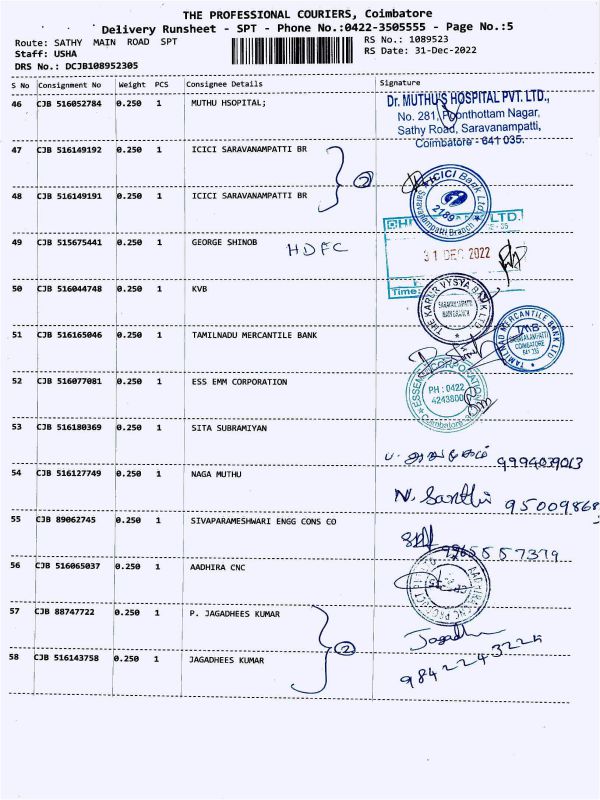 THE PROFESSIONAL COURIERS, Coimbatore
Delivery Runsheet - SPT - Phone No.:0422-3505555 - Page No.:5
Route: SATHY MAIN ROAD SPT
RS No.: 1089523
Staff: USHA
RS Date: 31-Dec-2022
DRS No.: DCJB108952305
S No Consignment No Weight PCS Consignee Details Signature
46 CJB 516052784 0.250 1 MUTHU HSOPITAL;
Dr. MUTHU'S HOSPITAL PVT. LTD.,
No. 281, Poonthottam Nagar,
Sathy Road, Saravanampatti,
Coimbatore - 641 035.
47 CJB 516149192 0.250 1 ICICI SARAVANAMPATTI BR
2
48 CJB 516149191 0.250 1 ICICI SARAVANAMPATTI BR
ICICI Bank Ltd
2169
Saravanampatti Branch
49 CJB 515675441 0.250 1 GEORGE SHINOB
HDFC
LTD.
31 DEC 2022
Time:
50 CJB 516044748 0.250 1 KVB
THE KARUR VYSYA BANK LTD
SARAVANAMPATTI
51 CJB 516165046 0.250 1 TAMILNADU MERCANTILE BANK
TAMILNAD MERCANTILE BANK LTD
TMB
SARAVANAMPATTI
COIMBATORE
52 CJB 516077081 0.250 1 ESS EMM CORPORATION
ESSEMM CORPORATION
PH : 0422
4243800
Coimbatore
53 CJB 516180369 0.250 1 SITA SUBRAMIYAN
9994039013
54 CJB 516127749 0.250 1 NAGA MUTHU
N. Santhi 95009868
55 CJB 89062745 0.250 1 SIVAPARAMESHWARI ENGG CONS CO
9965557379
56 CJB 516065037 0.250 1 AADHIRA CNC
57 CJB 88747722 0.250 1 P. JAGADHEES KUMAR
2
Jagadh
58 CJB 516143758 0.250 1 JAGADHEES KUMAR
9842243224